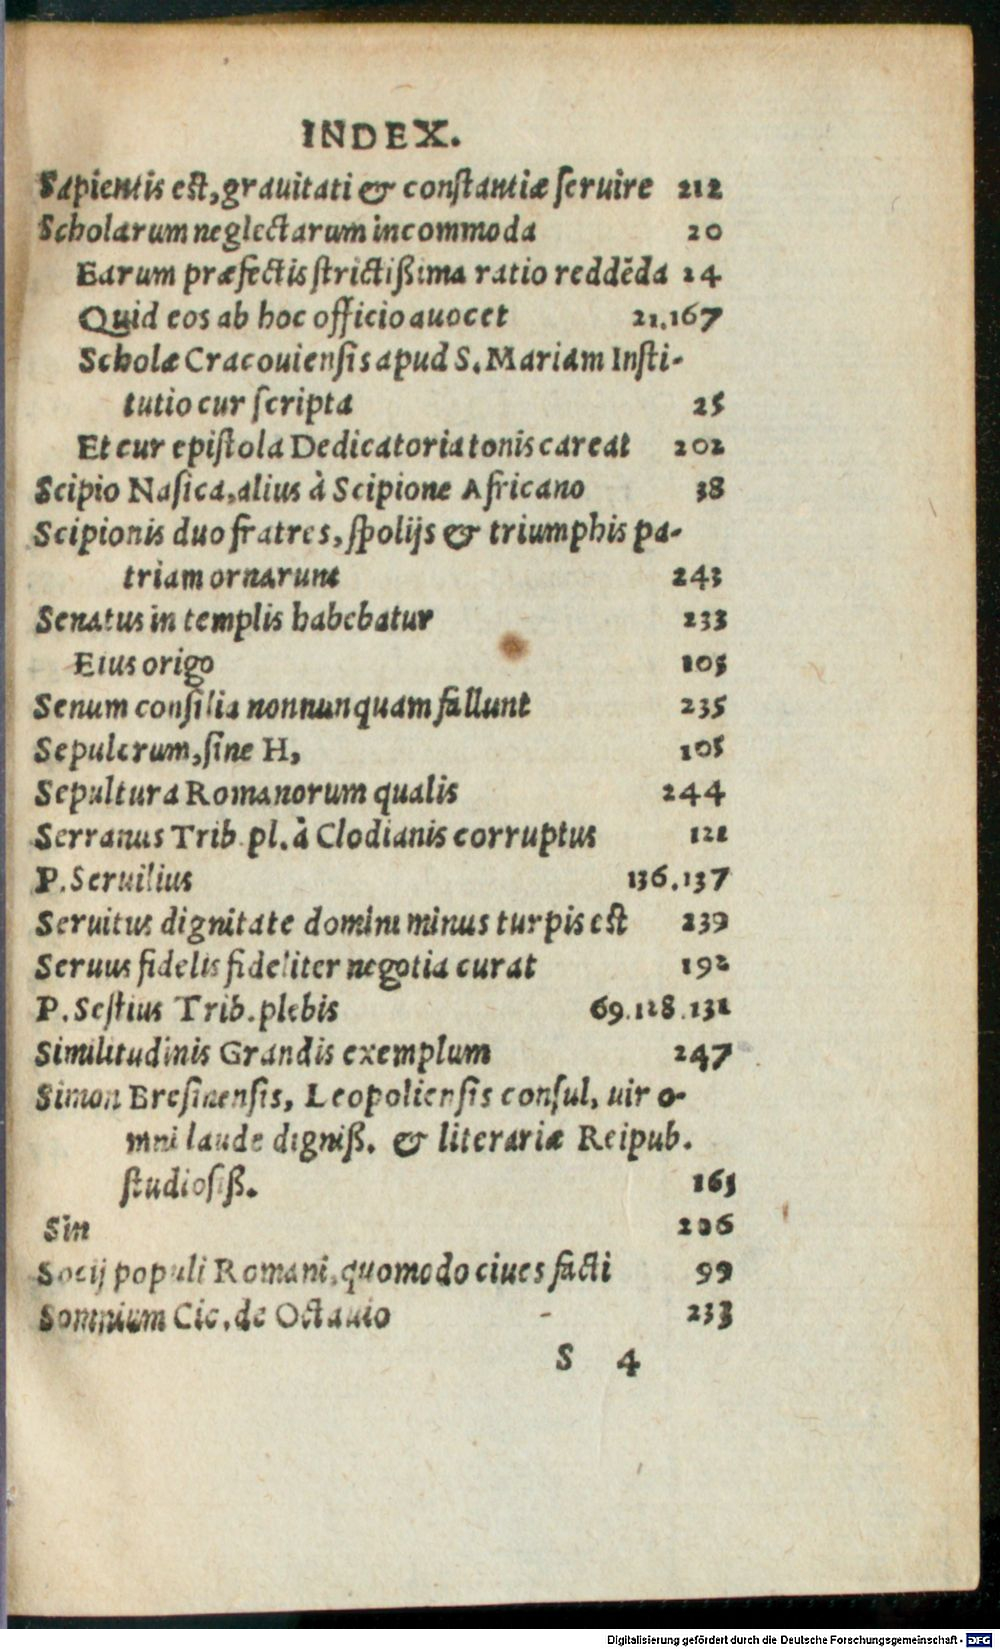 INDEX.
Sapientis est, grauitati & constantiæ seruire 212
Scholarum neglectarum incommoda 20
Earum præfectis strictißima ratio reddēda 24
Quid eos ab hoc officio auocet 21.167
Scholæ Cracouiensis apud S. Mariam Insti-
tutio cur scripta 25
Et cur epistola Dedicatoria tonis careat 202
Scipio Nasica, alius à Scipione Africano 38
Scipionis duo fratres, spolijs & triumphis pa-
triam ornarunt 243
Senatus in templis habebatur 233
Eius origo 105
Senum consilia nonnunquam fallunt 235
Sepulcrum, sine H, 105
Sepultura Romanorum qualis 244
Serranus Trib. pl. à Clodianis corruptus 121
P. Seruilius 136.137
Seruitus dignitate domini minus turpis est 239
Seruus fidelis fideliter negotia curat 192
P. Sestius Trib. plebis 69.128.131
Similitudinis Grandis exemplum 247
Simon Bresinensis, Leopoliensis consul, uir o-
mni laude digniß. & literariæ Reipub.
studiosiß. 163
Sin 206
Socij populi Romani, quomodo ciues facti 99
Somnium Cic. de Octauio - 233
S 4
Digitalisierung gefördert durch die Deutsche Forschungsgemeinschaft - DFG